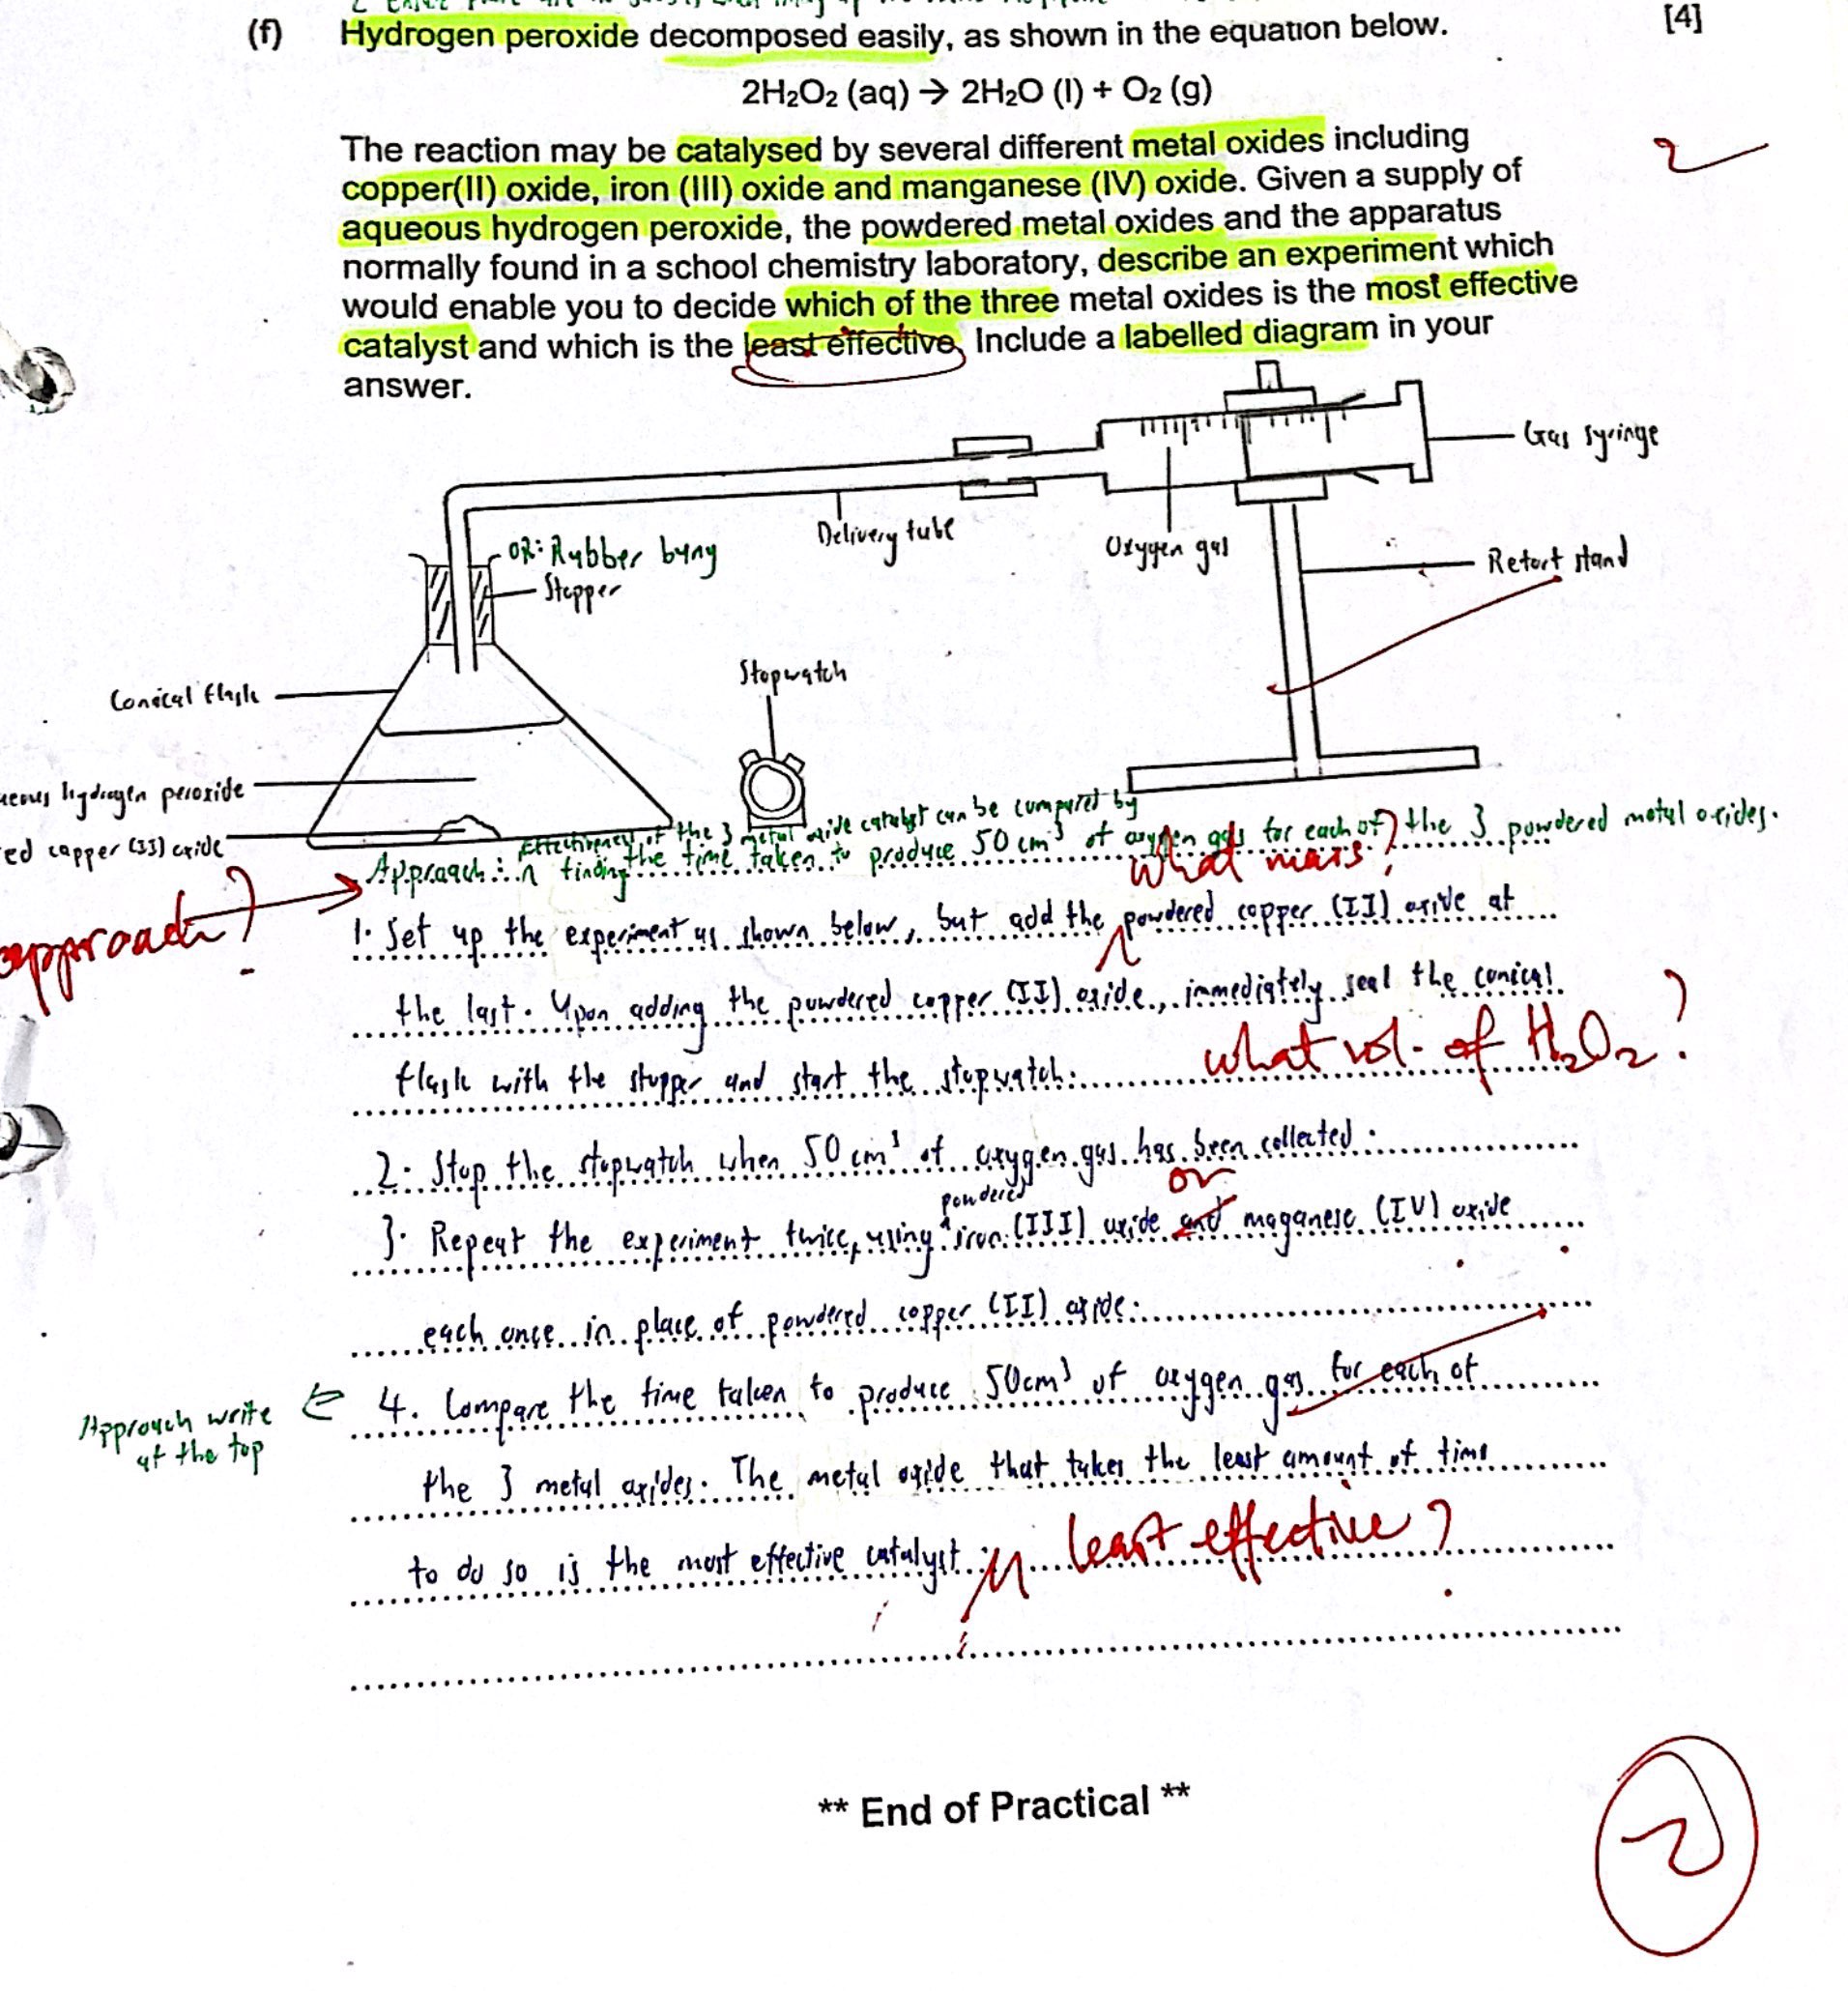 (f) Hydrogen peroxide decomposed easily, as shown in the equation below. [4]
2H₂O₂ (aq) → 2H₂O (l) + O₂ (g)
The reaction may be catalysed by several different metal oxides including
copper(II) oxide, iron (III) oxide and manganese (IV) oxide. Given a supply of
aqueous hydrogen peroxide, the powdered metal oxides and the apparatus
normally found in a school chemistry laboratory, describe an experiment which
would enable you to decide which of the three metal oxides is the most effective
catalyst and which is the least effective. Include a labelled diagram in your
answer.
2
Gas syringe
Delivery tube
Oxygen gas
OR: Rubber bung
Stopper
Retort stand
Conical flask
Stopwatch
eous hydrogen peroxide
ed copper (II) oxide
Effectiveness of the 3 metal oxide catalyst can be compared by
Approach: finding the time taken to produce 50 cm³ of oxygen gas for each of the 3 powdered metal oxides.
approach?
what mass?
1. Set up the experiment as shown below, but add the powdered copper (II) oxide at
the last. Upon adding the powdered copper (II) oxide, immediately seal the conical
flask with the stopper and start the stopwatch.
what vol. of H₂O₂?
2. Stop the stopwatch when 50 cm³ of oxygen gas has been collected.
powdered or
3. Repeat the experiment twice, using iron (III) oxide and maganese (IV) oxide
each once in place of powdered copper (II) oxide.
4. Compare the time taken to produce 50cm³ of oxygen gas for each of
Approach write
at the top
the 3 metal oxides. The metal oxide that takes the least amount of time
to do so is the most effective catalyst.
least effective?
** End of Practical **
2